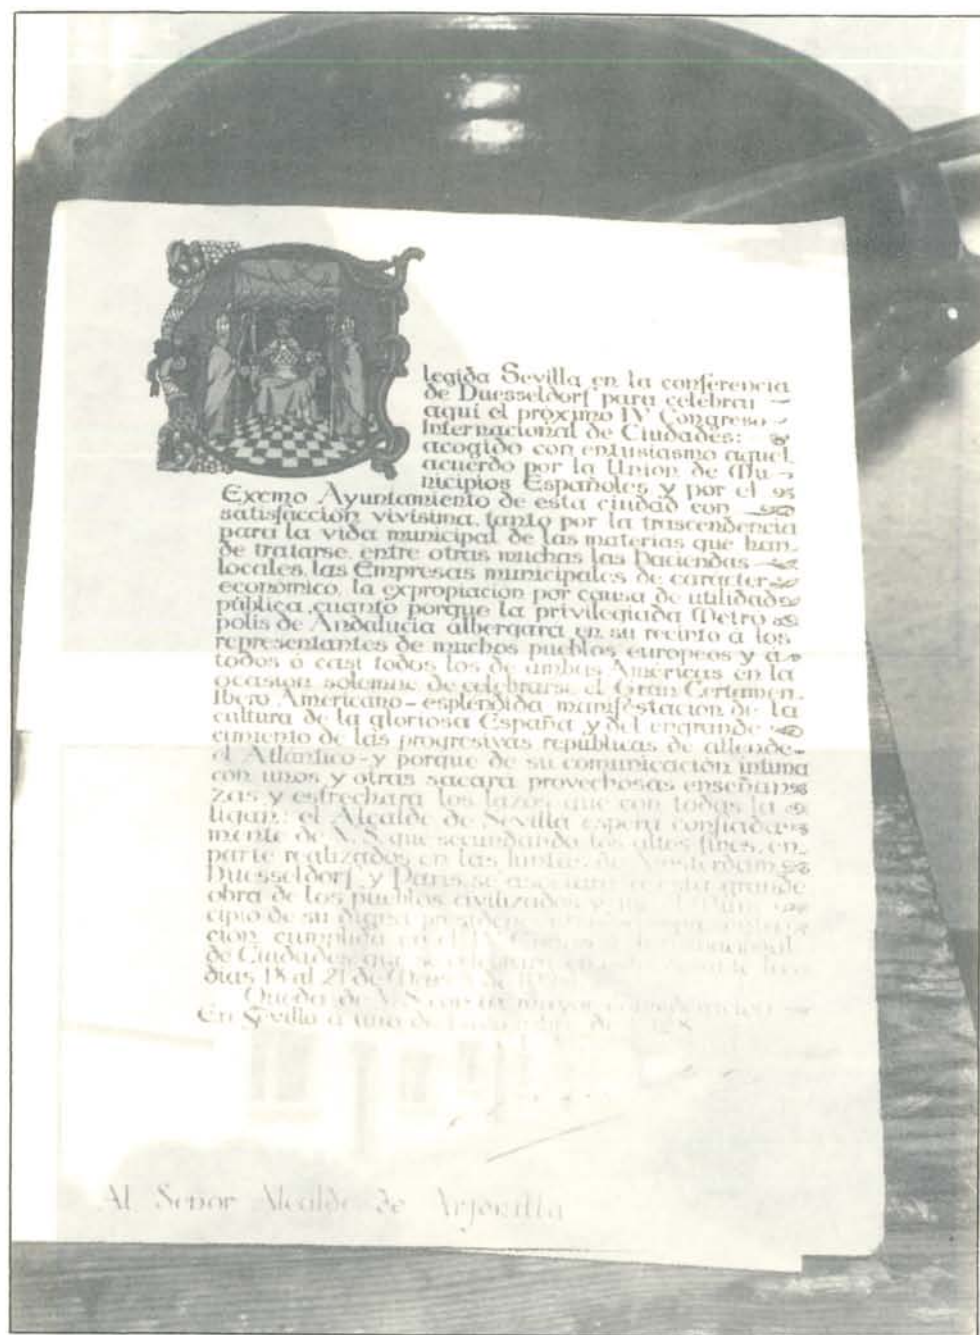 legida Sevilla en la conferencia
de Duesseldorf para celebrar
aquí el próximo IV Congreso
Internacional de Ciudades:
acogido con entusiasmo aquel
acuerdo por la Union de Mu-
nicipios Españoles y por el
Excmo Ayuntamiento de esta ciudad con
satisfacción vivísima, tanto por la trascendencia
para la vida municipal de las materias que han
de tratarse, entre otras muchas las Haciendas
locales, las Empresas municipales de caracter
económico, la expropiacion por causa de utilidad
pública, cuanto porque la privilegiada Metro
polis de Andalucia albergara en su recinto á los
representantes de muchos pueblos europeos y á
todos ó casi todos los de ambas Américas en la
ocasion solemne de celebrarse el Gran Certamen
Ibero Americano-esplendida manifestacion de la
cultura de la gloriosa España y del engrande
cimiento de las progresivas repúblicas de allende
el Atlántico-y porque de su comunicación intima
con unos y otras sacara provechosas enseñan
zas y estrechara los lazos que con todas la
ligan; el Alcalde de Sevilla espera confiada
mente de V.S. que secundando los altos fines, en
parte realizados en las Juntas de Amsterdam,
Duesseldorf y Paris, se asociara á esta grande
obra de los pueblos civilizados y
cipio de su digna
cion cumplida en el IV
de Ciudades que se celebrara en
dias 18 al 21 de
Queda de V.S. con la mayor consideracion
En Sevilla a uno de
Al Señor Alcalde de Arjonilla